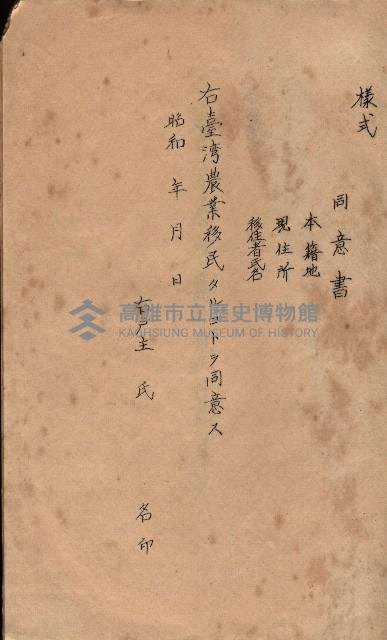 樣式
同意書
本籍地
現住所
移住者氏名
右臺湾農業移民タルコトヲ同意ス
昭和 年 月 日
右戸主 氏 名印
高雄市立歷史博物館
KAOHSIUNG MUSEUM OF HISTORY